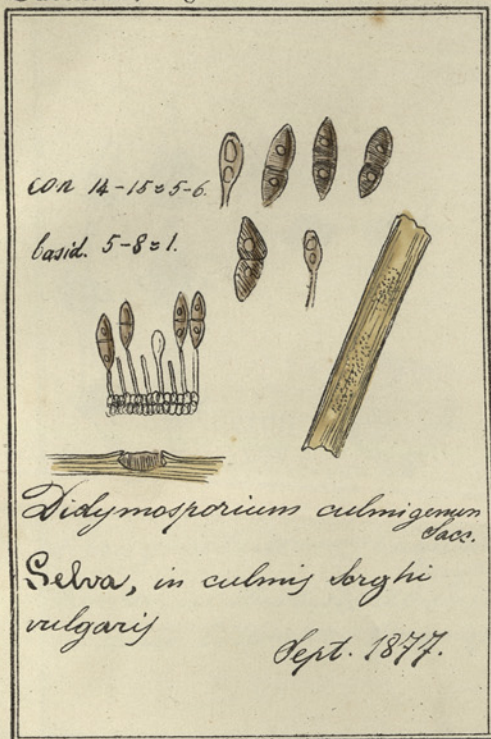 con 14-15 = 5-6.
basid. 5-8 = 1.
Didymosporium culmigenum
Sacc.
Selva, in culmis Sorghi
vulgaris
Sept. 1877.